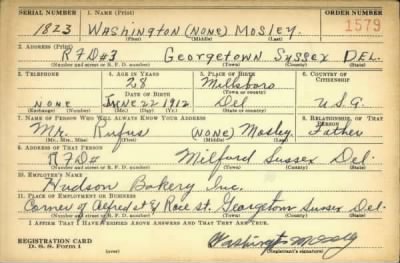 SERIAL NUMBER 1. NAME (Print) ORDER NUMBER
1823 WASHINGTON (NONE) MOSLEY. 1579
(First) (Middle) (Last)
2. ADDRESS (Print)
RFD#3 GEORGETOWN SUSSEX DEL.
(Number and street or R. F. D. number) (Town) (County) (State)
3. TELEPHONE 4. AGE IN YEARS 5. PLACE OF BIRTH 6. COUNTRY OF CITIZENSHIP
28 Millsboro
DATE OF BIRTH (Town or county)
NONE JUNE 22 1912 Del U.S.A.
(Exchange) (Number) (Mo.) (Day) (Yr.) (State or country)
7. NAME OF PERSON WHO WILL ALWAYS KNOW YOUR ADDRESS 8. RELATIONSHIP OF THAT PERSON
Mr. Rufus (NONE) Mosley Father
(Mr., Mrs., Miss) (First) (Middle) (Last)
9. ADDRESS OF THAT PERSON
RFD# Milford Sussex Del.
(Number and street or R. F. D. number) (Town) (County) (State)
10. EMPLOYER'S NAME
Hudson Bakery Inc.
11. PLACE OF EMPLOYMENT OR BUSINESS
Corner of Alfred st & Race st. Georgetown Sussex Del.
(Number and street or R. F. D. number) (Town) (County) (State)
I AFFIRM THAT I HAVE VERIFIED ABOVE ANSWERS AND THAT THEY ARE TRUE.
REGISTRATION CARD
D. S. S. Form 1
Washington Mosley
(Registrant's signature)